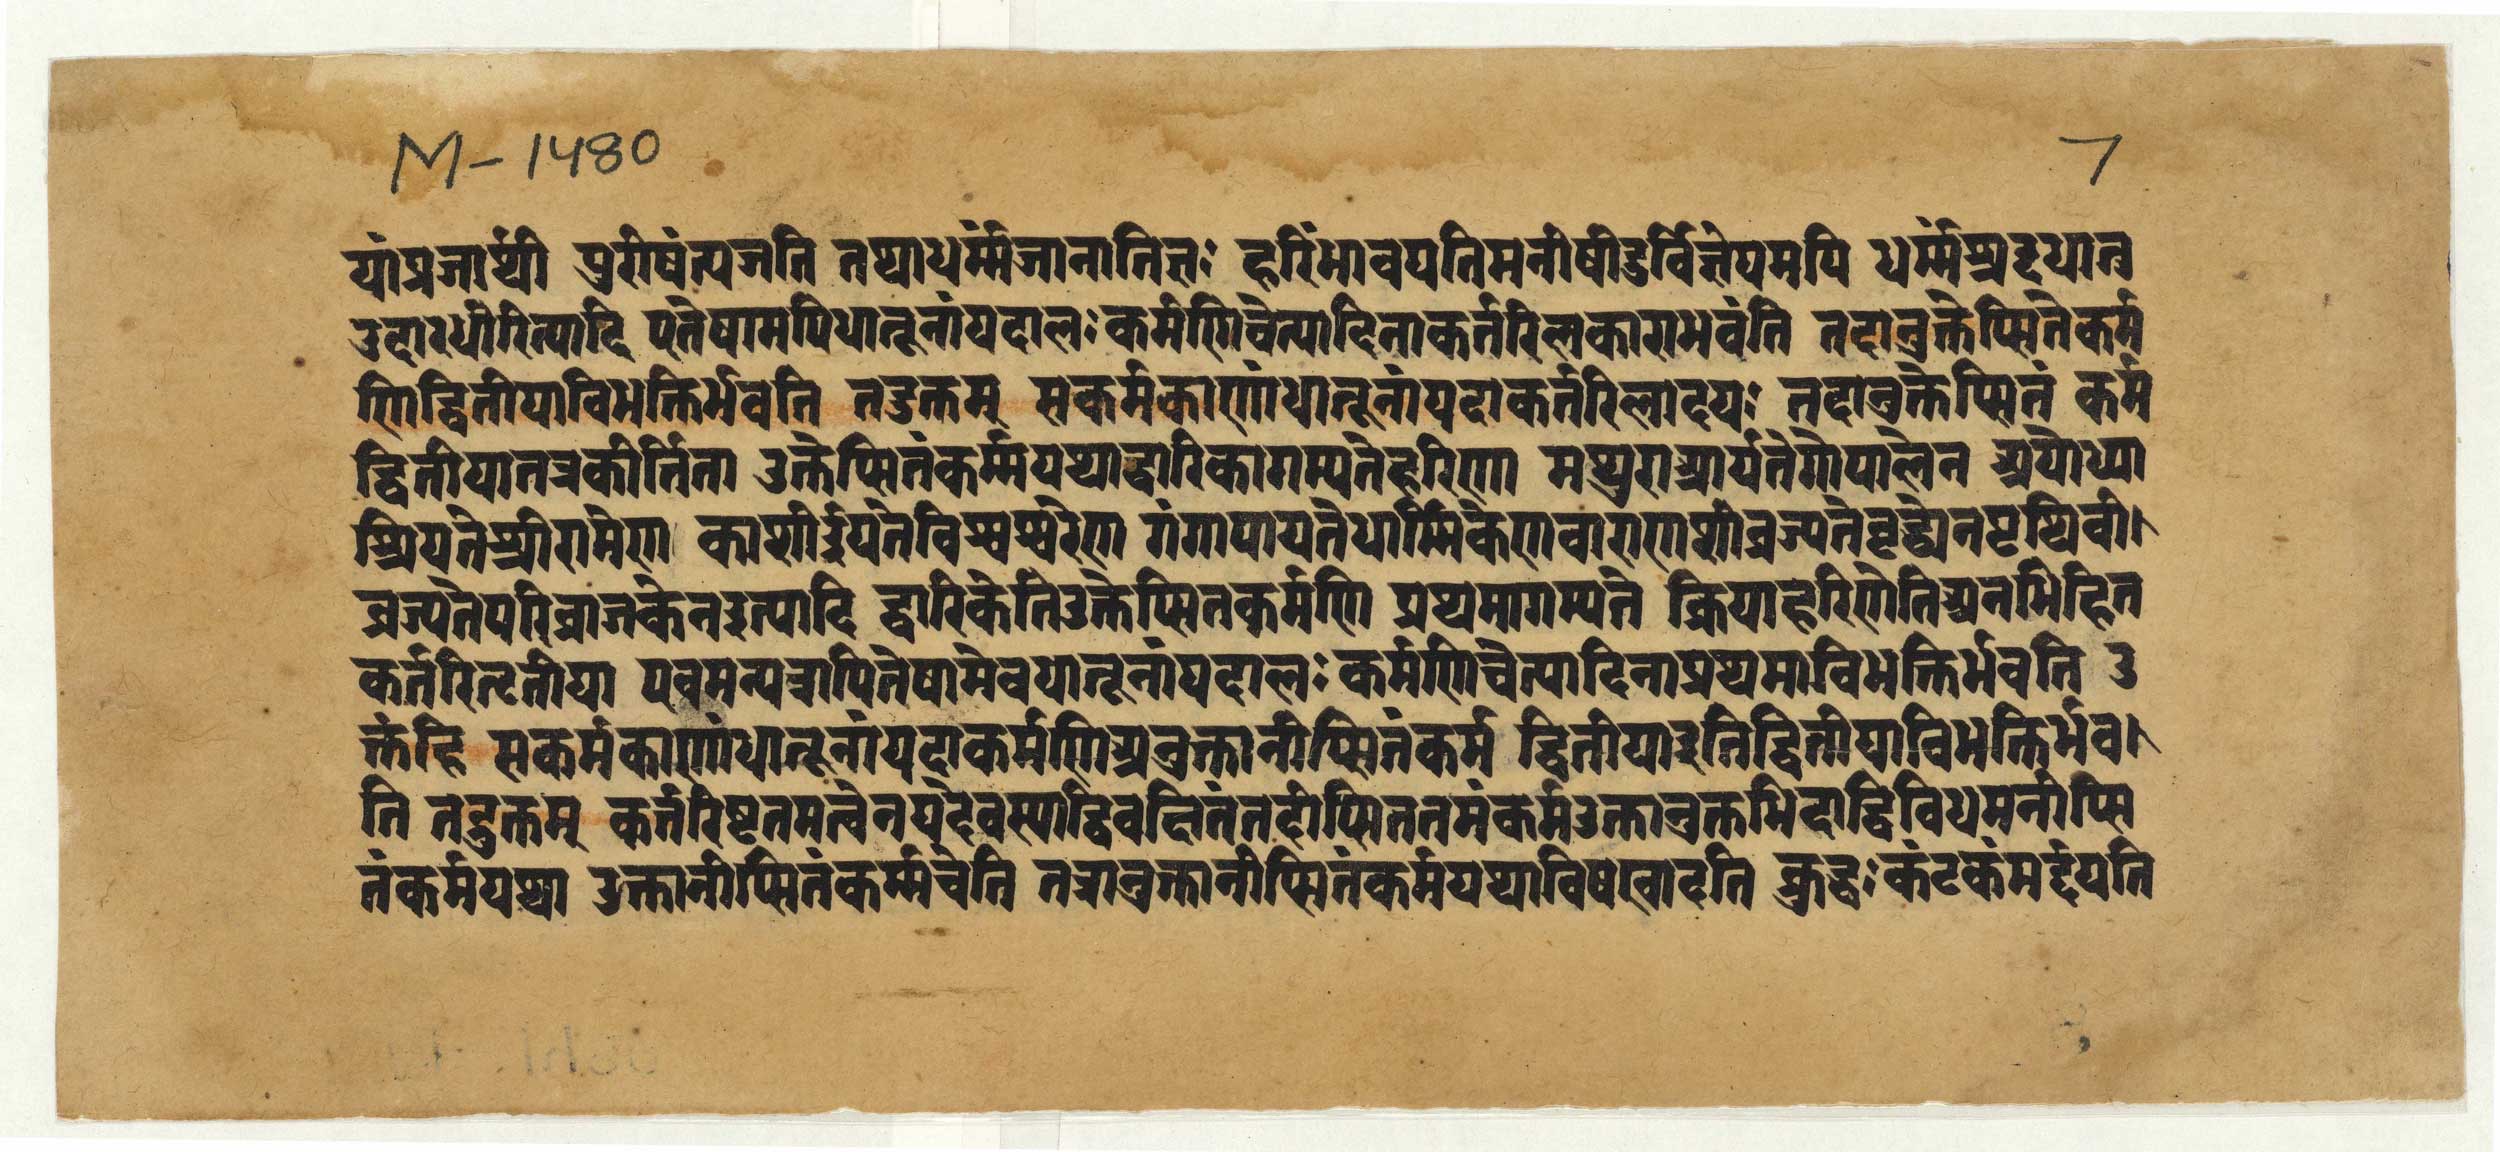 M-1480
7
यांप्रजार्थी पुरीषंत्यजति तथाधर्म्मंजानातिज्ञः हरिंभावयतिमनीषीदुर्विज्ञेयमपि धर्म्मंश्रद्दधात
उदारधीरित्यादि एतेषामपिधातूनांयदालः कर्मणिचेत्यादिनाकर्तरिलकाराभवंति तदानुक्तेप्सितेकर्म
णिद्वितीयाविभक्तिर्भवति तदुक्तम् सकर्मकाणांधातूनांयदाकर्तरिलादयः तदानुक्तेप्सितं कर्म
द्वितीयातत्रकीर्तिता उक्तेप्सितंकर्म्मयथाद्वारिकागम्यतेहरिणा मथुराप्रार्यतेगोपालेन अयोध्या
श्रियतेश्रीरामेण काशी विश्वश्वरेण गंगापायतेधार्म्मिकेणवाराणशीव्रज्यतेवृद्धेनष्टथिवी।
व्रज्यतेपरिव्राजकेनइत्यादि द्वारिकेतिउक्तेप्सितकर्मणि प्रथमागम्यते क्रियाहरिणेतिअनभिहित
कर्तरितृतीया एवमन्यत्रापितेषामेवधातूनांयदालः कर्मणिचेत्यादिनाप्रथमाविभक्तिर्भवति उ
क्तंहि सकर्मकाणांधातूनांयदाकर्मणिअनुक्तानीप्सितंकर्म द्वितीयाइतिद्वितीयाविभक्तिर्भव।
ति तदुक्तम् कर्तरिष्टतमत्वेनयदेवस्याद्विवक्षितंतदीप्सिततमंकर्मउक्तानुक्तभिदाद्विविधमनीप्सि
तंकर्मयथा उक्तानीप्सितंकर्म्मचेति तत्रानुक्तानीप्सितंकर्मयथाविषखादति क्रुद्धः कंटकंमर्द्दयति